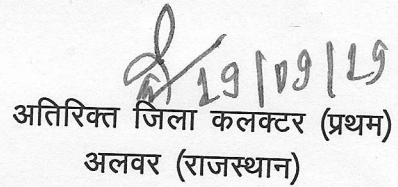 19/09/19
अतिरिक्त जिला कलक्टर (प्रथम)
अलवर (राजस्थान)